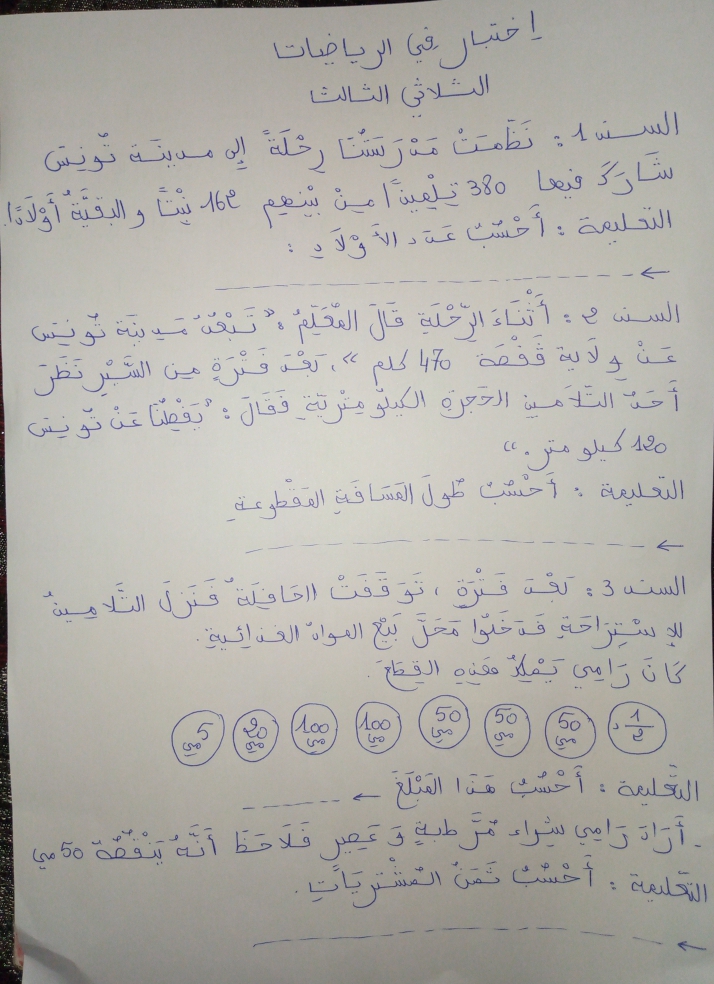 إختبار في الرياضيات
الثلاثي الثالث
السند 1 : نَظَّمَتْ مَدْرَسَتُنَا رِحْلَةً إِلى مدينة تُونِسَ
شَارَكَ فيها 380 تِلْمِيذًا مِنْ بَيْنِهِم 162 بِنْتًا و البَقيَّةُ أَوْلَادًا.
التعليمة : أَحْسُبُ عَدَدَ الأَوْلَادِ :
السند 2 : أَثْنَاءَ الرِّحْلَةِ قَالَ المُعَلِّمُ : " تَبْعُدُ مَدِينَة تُونِسَ
عَنْ وِلَاية قَفْصَة 470 كلم "، بَعْدَ فَتْرَةٍ مِن السَّيْرِ نَظَرَ
أَحَدُ التّلَامِيذِ الحَجَرَةِ الكيلُومِتْرِيّةِ فَقَالَ : "يَفْصِلُنَا عَنْ تُونِسَ
120 كيلومتر. "
التعليمة : أَحْسُبُ طُولَ المَسَافَةِ المَقْطُوعةِ
السند 3 : بَعْدَ فَتْرَةٍ ، تَوَقَّفَتْ الحَافِلَةُ فَنَزَلَ التَّلَامِيذُ
للإسْتِرَاحَةِ فَدَخَلُوا مَحَلَّ بَيْعِ المَوادِ الغذائِيةِ.
كَانَ رَامِي يَمْلِكُ هَذِهِ القِطَعَ.
1/2 د 50 مي 50 مي 50 مي 100 مي 100 مي 20 مي 5 مي
التَّعليمة : أَحْسُبُ هَذَا المَبْلَغَ
. أَرَادَ رَامِي شِراء مُرَّطبةٍ وَ عَصِيرٍ فَلَاحَظَ أَنَّهُ يَنْقُصُهُ 50 مي
التَّعليمة : أَحْسُبُ ثَمَنُ المُشْتَرَيَاتِ.